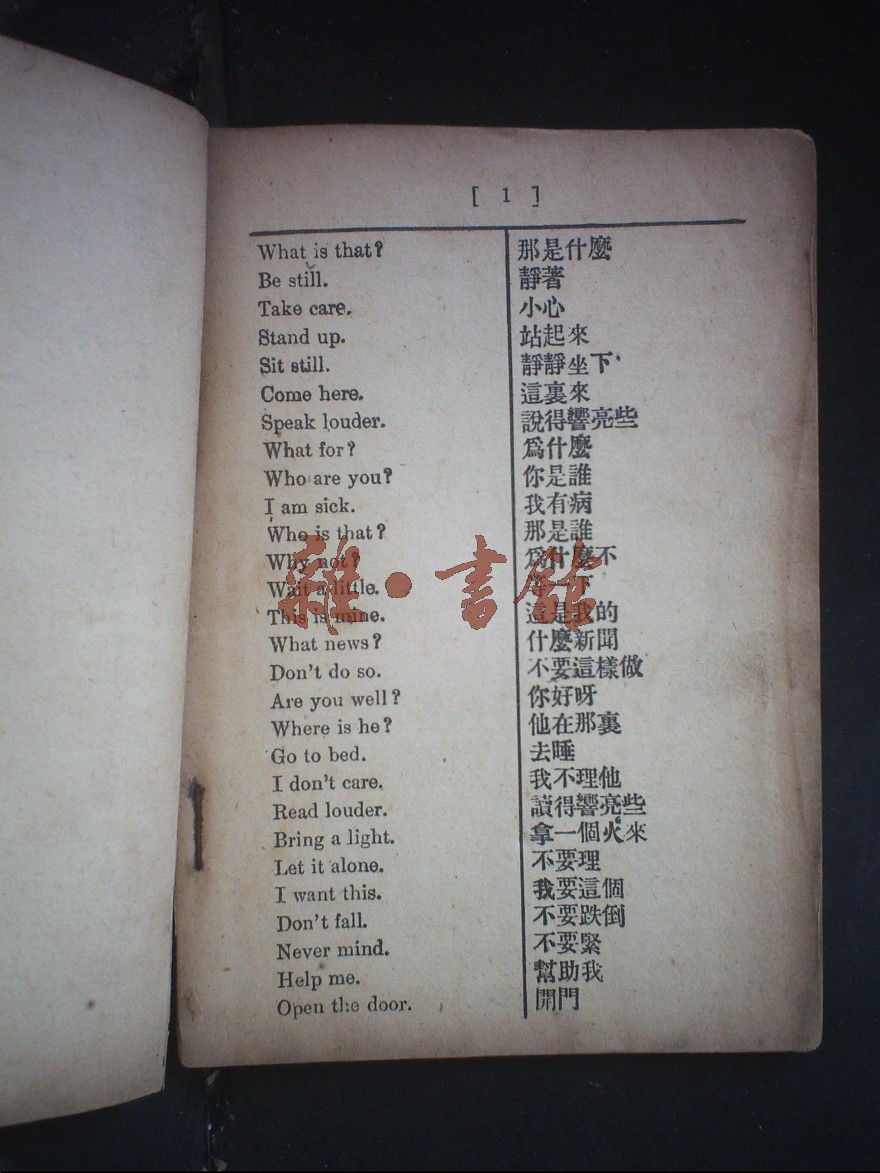 [ 1 ]
What is that? 那是什麼
Be still. 靜著
Take care. 小心
Stand up. 站起來
Sit still. 靜靜坐下
Come here. 這裏來
Speak louder. 說得響亮些
What for? 爲什麼
Who are you? 你是誰
I am sick. 我有病
Who is that? 那是誰
Why not? 爲什麼不
Wait a little. 等一下
This is mine. 這是我的
What news? 什麼新聞
Don't do so. 不要這樣做
Are you well? 你好呀
Where is he? 他在那裏
Go to bed. 去睡
I don't care. 我不理他
Read louder. 讀得響亮些
Bring a light. 拿一個火來
Let it alone. 不要理
I want this. 我要這個
Don't fall. 不要跌倒
Never mind. 不要緊
Help me. 幫助我
Open the door. 開門
雜·書館